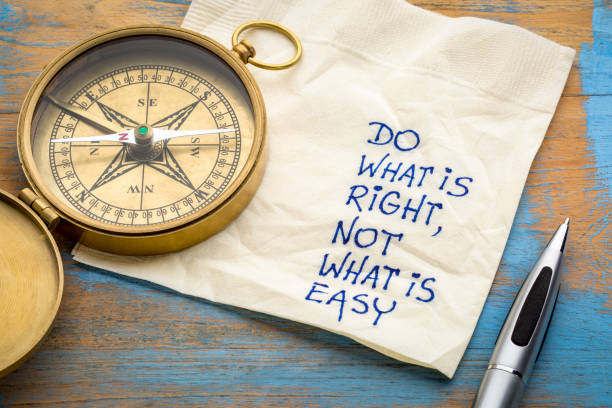 DO
WHAT iS
RiGHT,
NOT
WHAT iS
EASY
SE
S
SW
W
NW
N